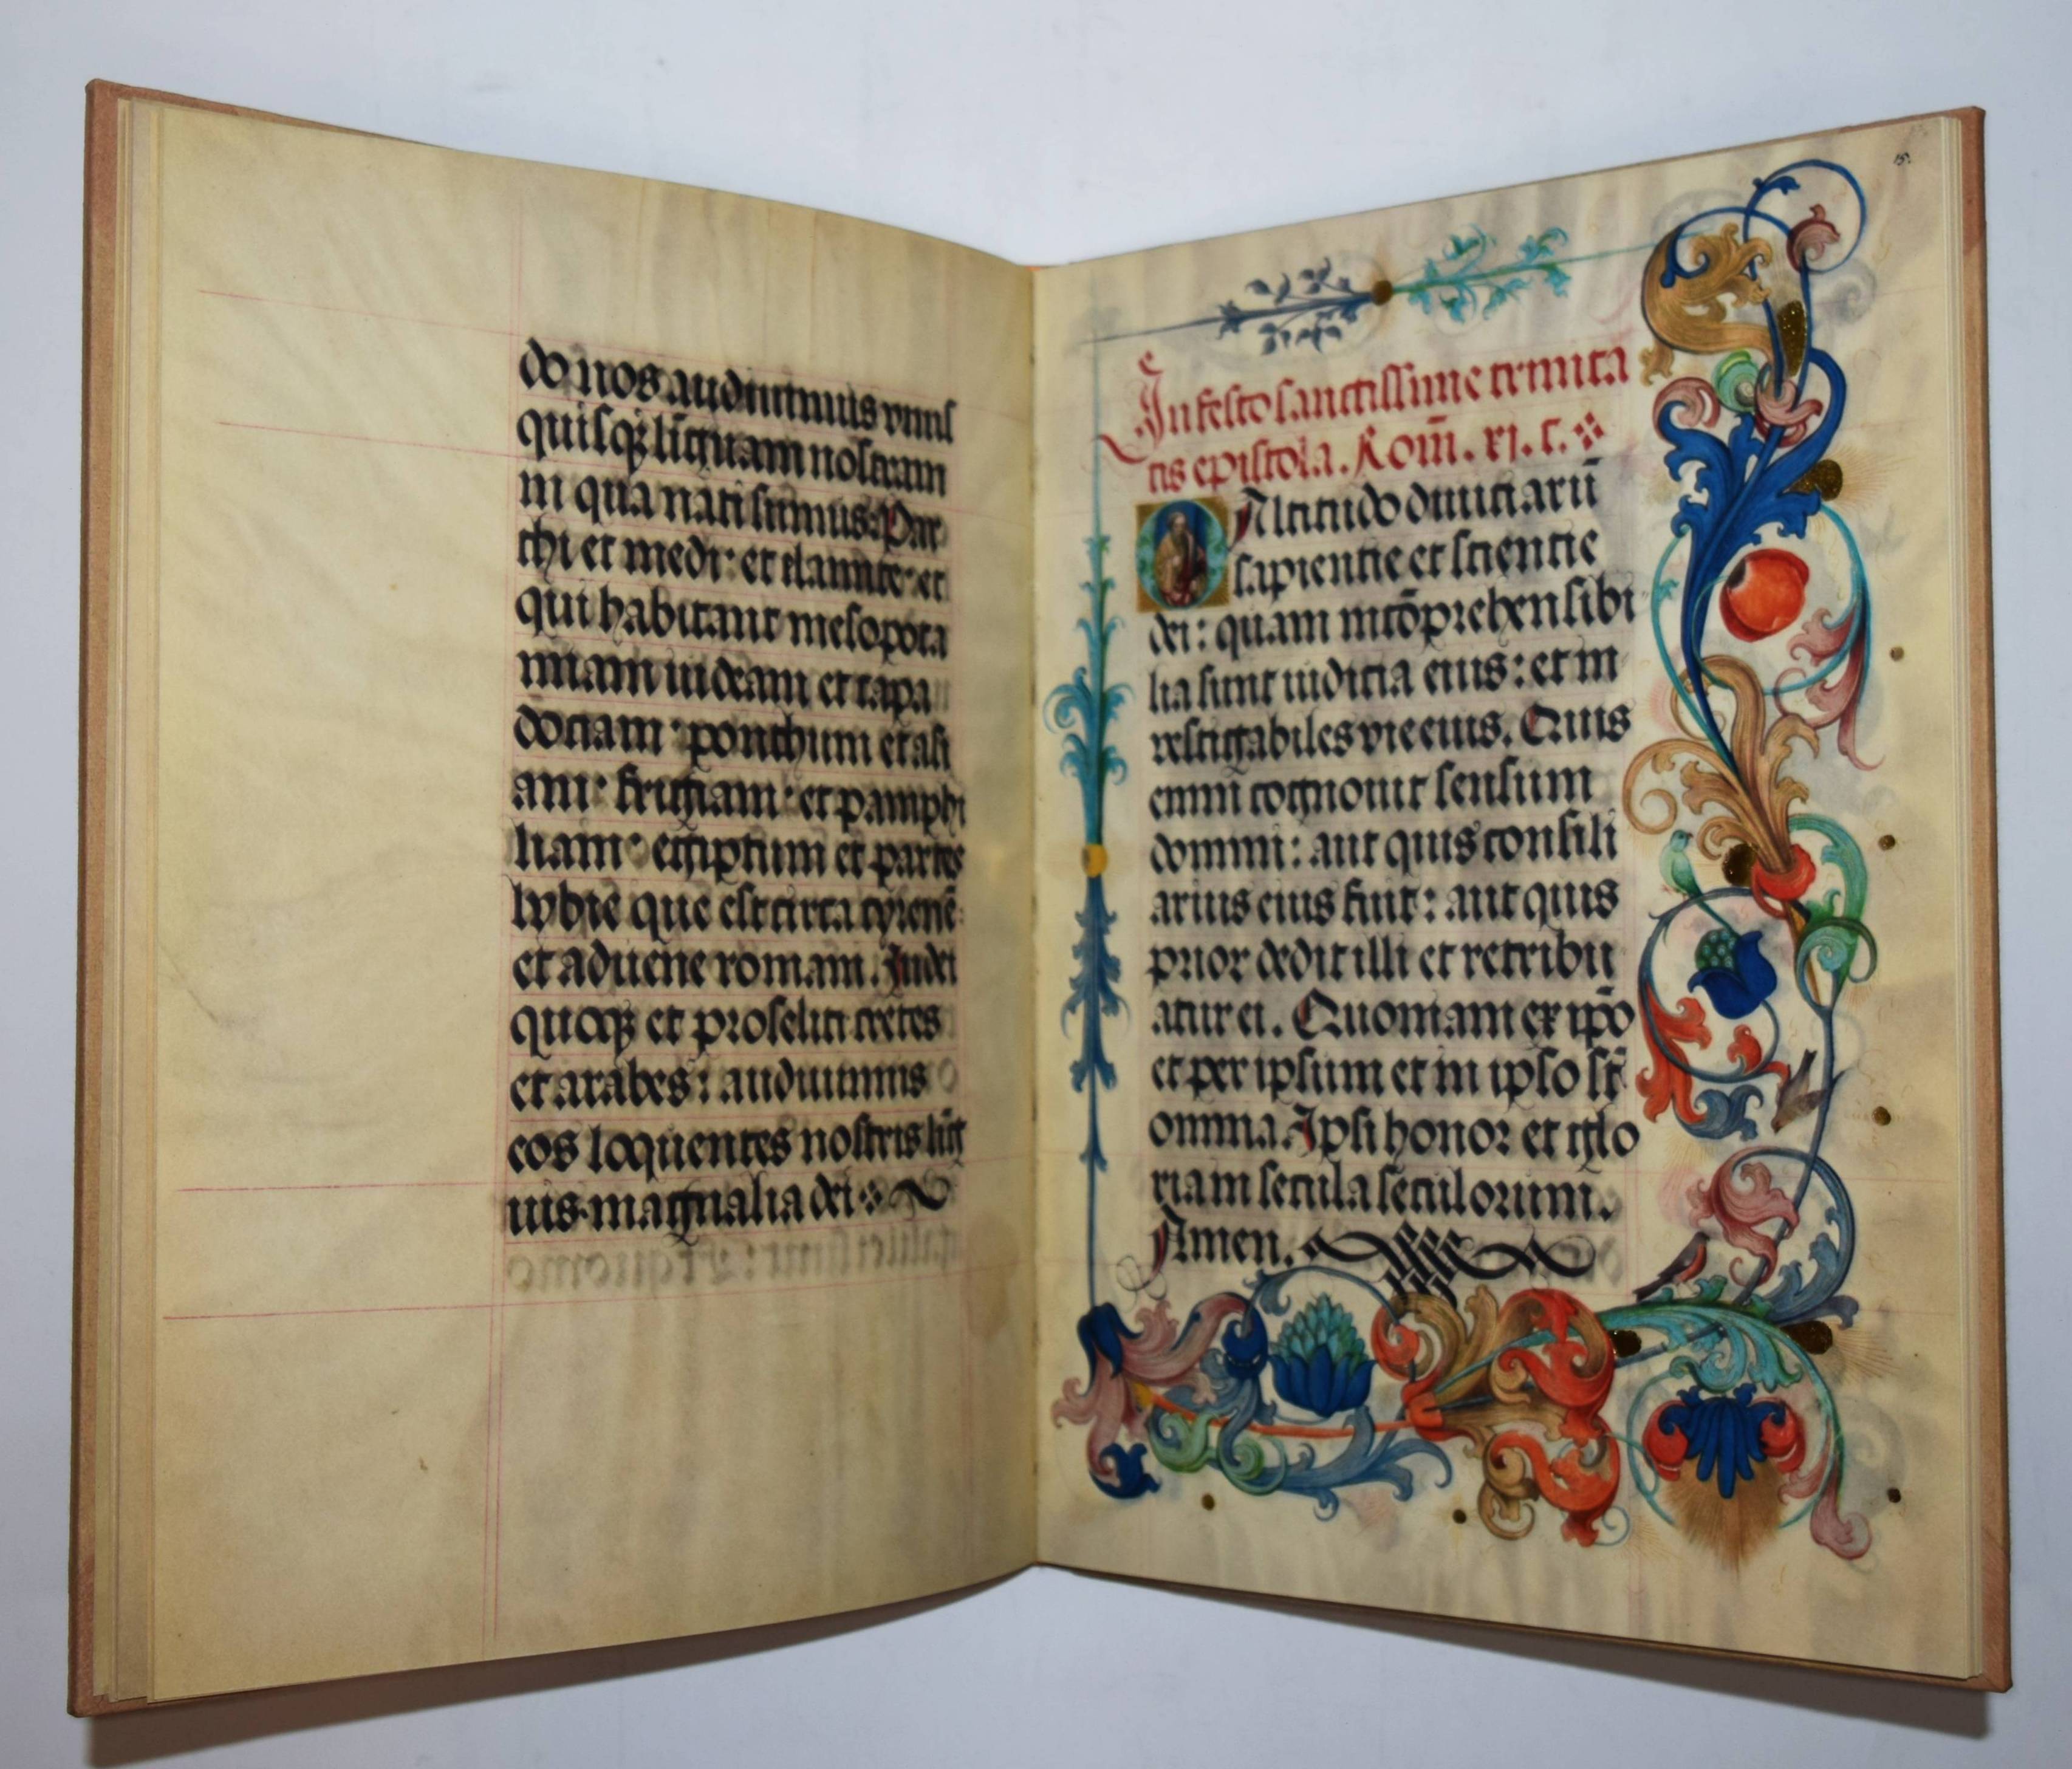 do nos audiuimus vnus
quisqꝫ līguam nostram
in qua nati sumus: Par
thi et medi: et elamite: et
qui habitant mesopota
miam iudeam et capa
dociam: ponthum et asi
am: frigiam: et pamphi
liam: egiptum et partes
lybie que est circa cyrenē:
et aduene romam. Iudei
quoqꝫ et proseliti cretes
et arabes: audiuimus
eos loquentes nostris lig̅
uis magnalia dei
15.
In festo sanctissime trinita
tis epistola. Rom̄. xi. c.
O Altitudo diuiciarū
sapientie et scientie
dei: quam incōprehensibi
lia sunt iudicia eius: et in
vestigabiles vie eius. Quis
enim cognouit sensum
domini: aut quis consili
arius eius fuit: aut quis
prior dedit illi et retribu
atur ei. Quoniam ex ip̄o
et per ipsum et in ipso st̄
omnia. Ipsi honor et glo
riam secula seculorum.
Amen.